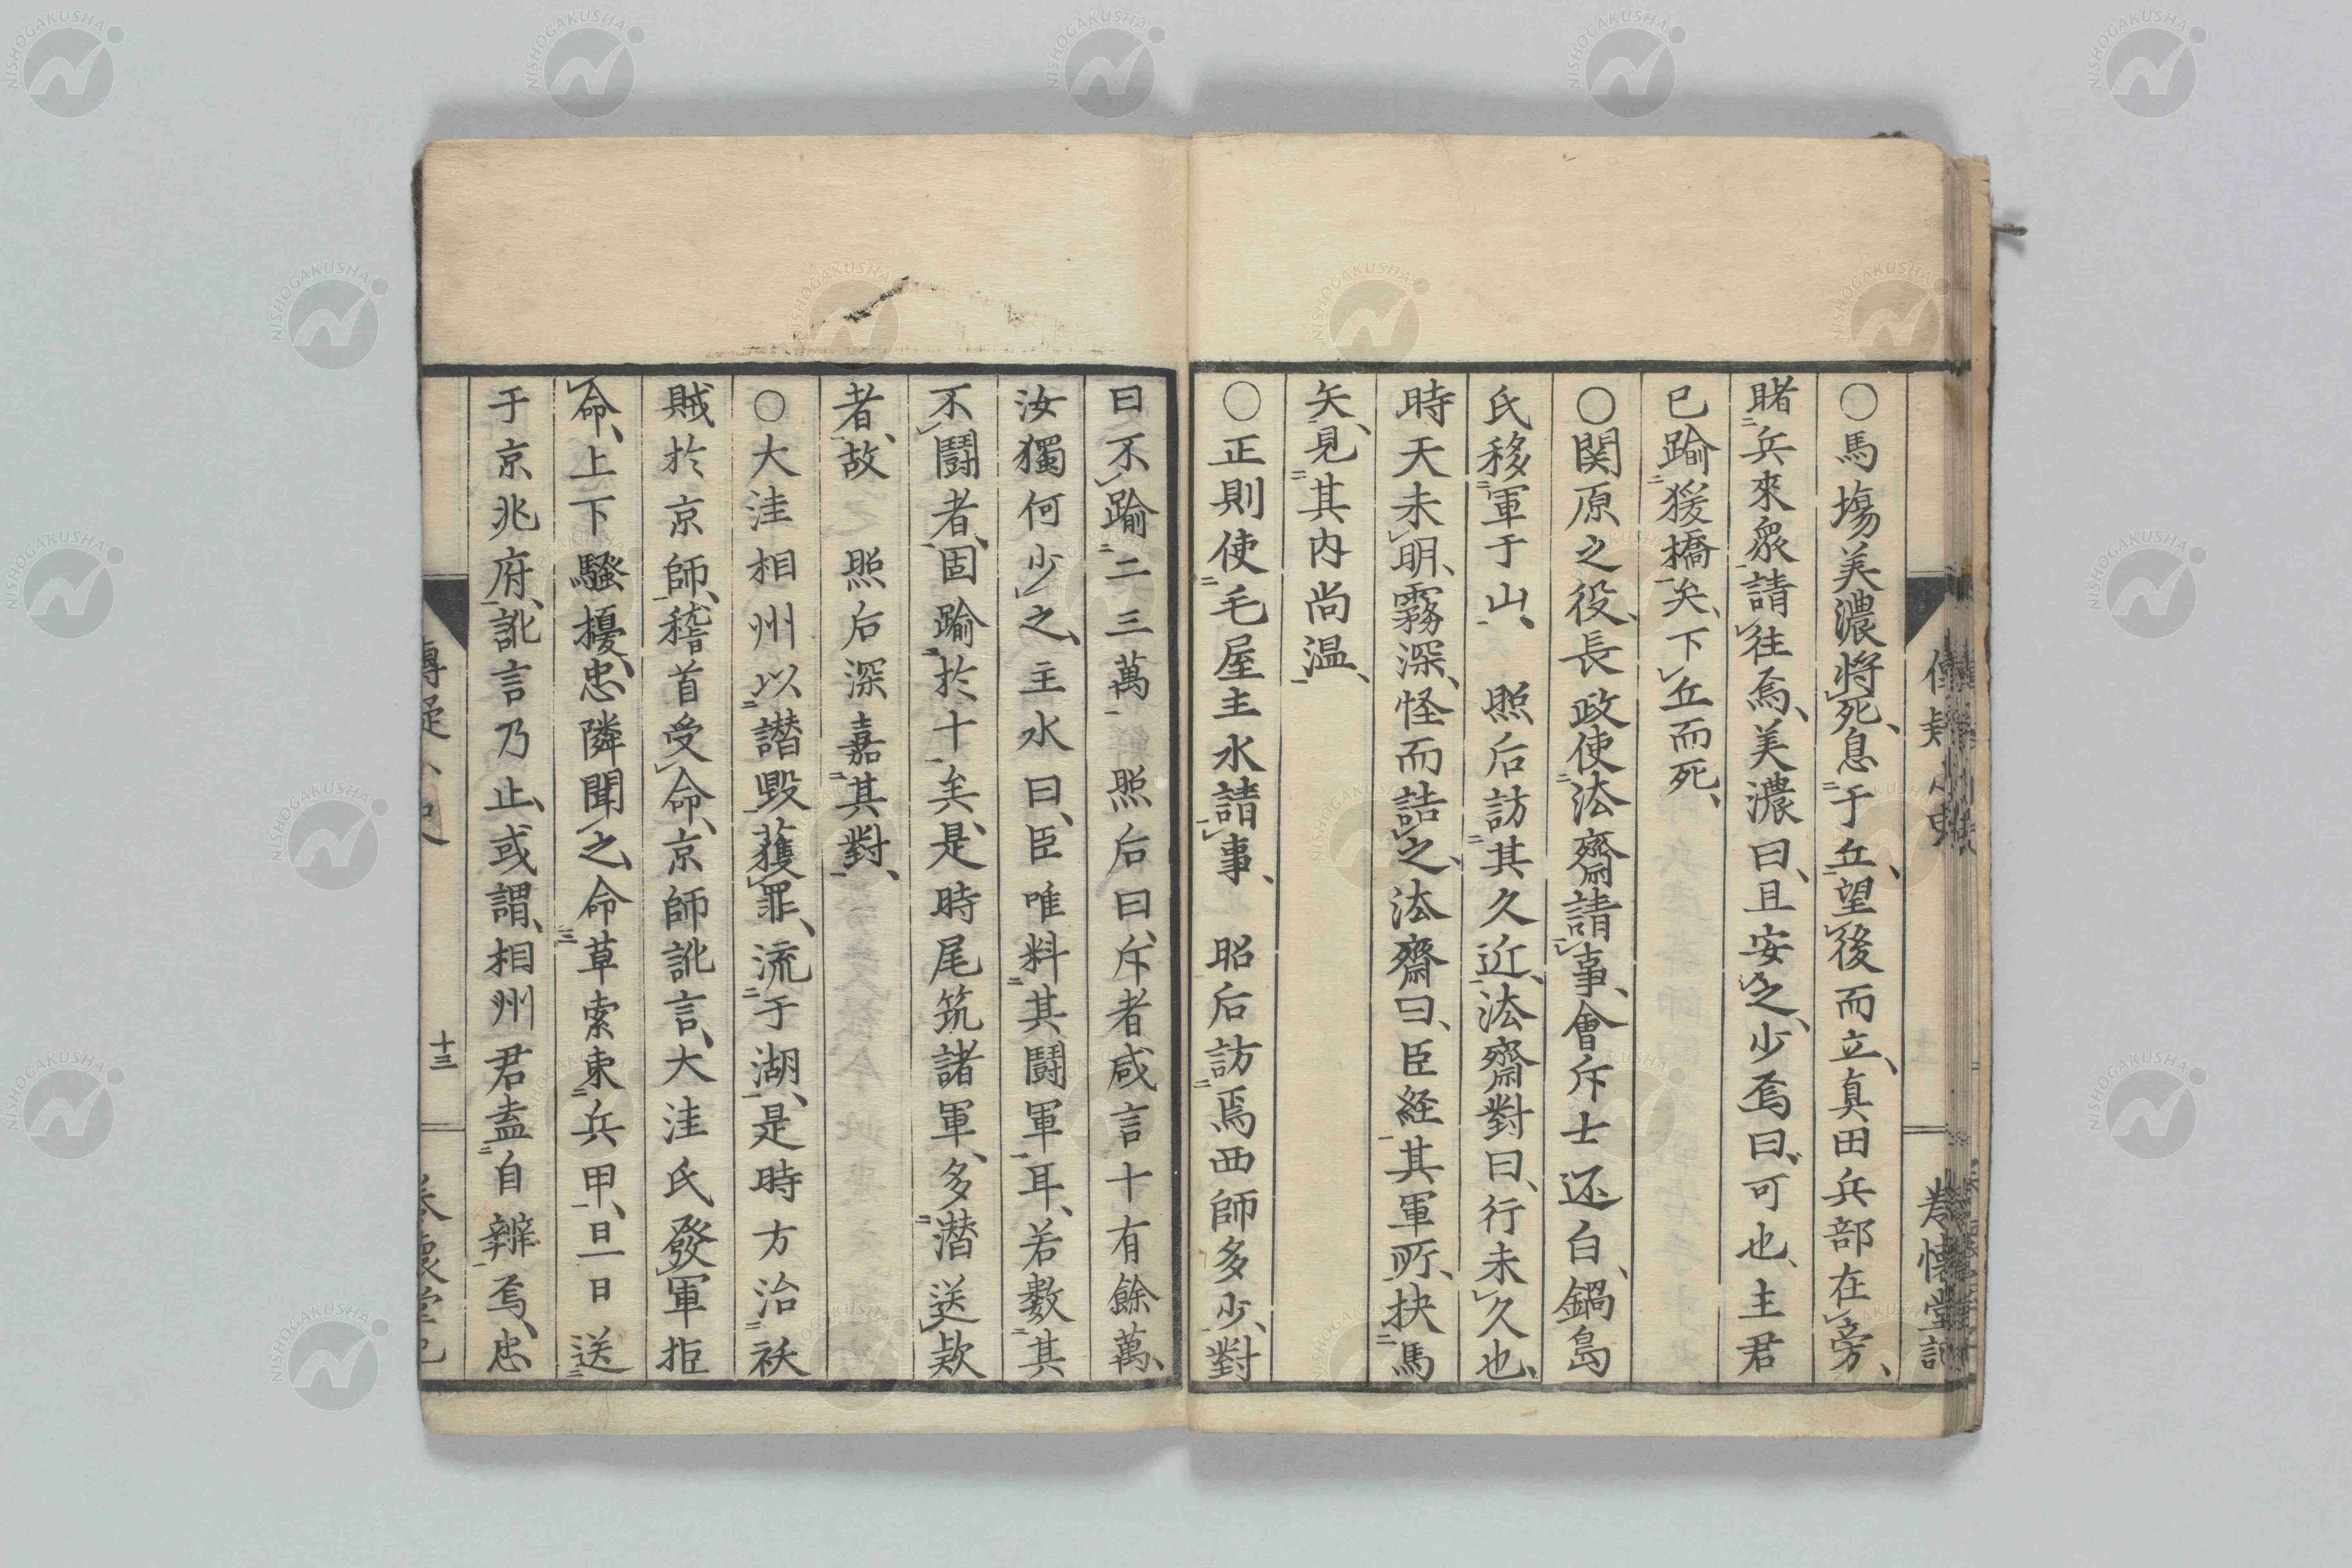 〇馬場美濃將死、息于丘、望後而立、真田兵部在旁、
睹兵來衆請往焉、美濃曰、且安之、少焉曰、可也、主君
已踰猨橋矣、下丘而死、
〇関原之役、長政使法齋請事、會斥士还白、鍋島
氏移軍于山、照后訪其久近、法齋對曰、行未久也、
時天未明、霧深、怪而詰之、法齋曰、臣経其軍所、抉馬
矢、見其内尚温、
〇正則使毛屋主水請事、昭后訪焉西師多少、對
曰不踰二三萬照后曰、斥者咸言十有餘萬、
汝獨何少之、主水曰、臣唯料其鬪軍耳、若數其
不鬪者、固踰於十矣、是時尾筑諸軍、多潛送款
者、故照后深嘉其對、
〇大洼相州以譖毀獲罪、流于湖、是時方治袄
賊於京師、稽首受命、京師訛言、大洼氏發軍拒
命、上下騷擾、忠隣聞之、命草索束兵甲、旦日送
于京兆府、訛言乃止、或謂、相州君盍自辨焉、忠
十三
NISHOGAKUSHA